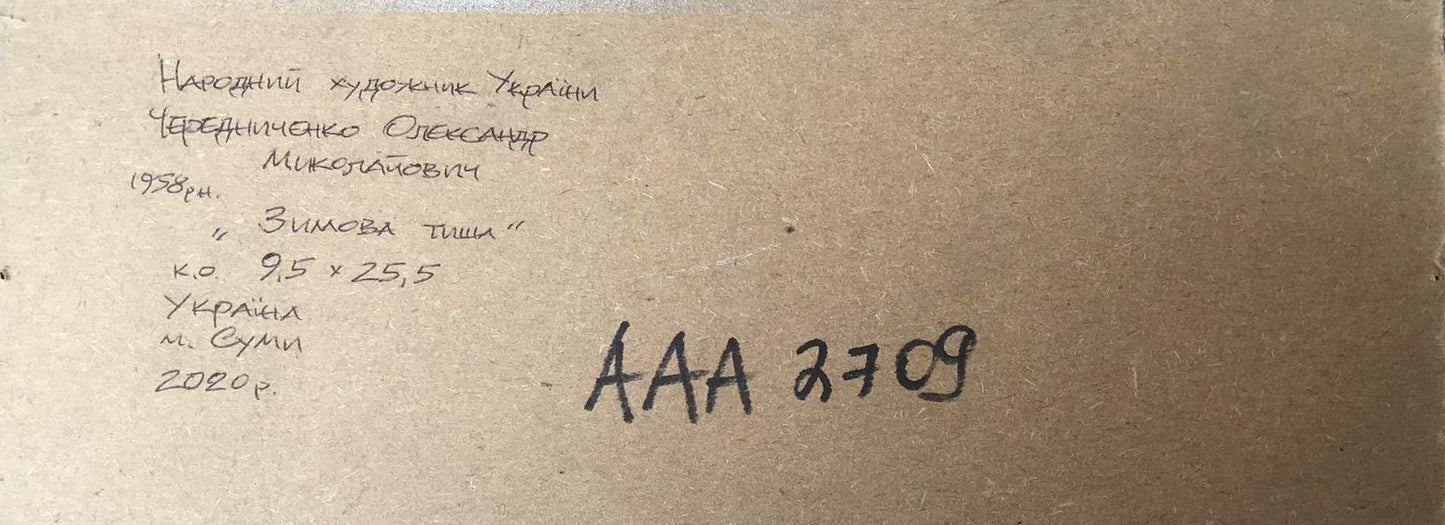 Народний художник України
Чередниченко Олександр
Миколайович
1958 р.н.
„ Зимова тиша "
к.о. 9,5 x 25,5
Україна
м. Суми
2020 р.
AAA 2709